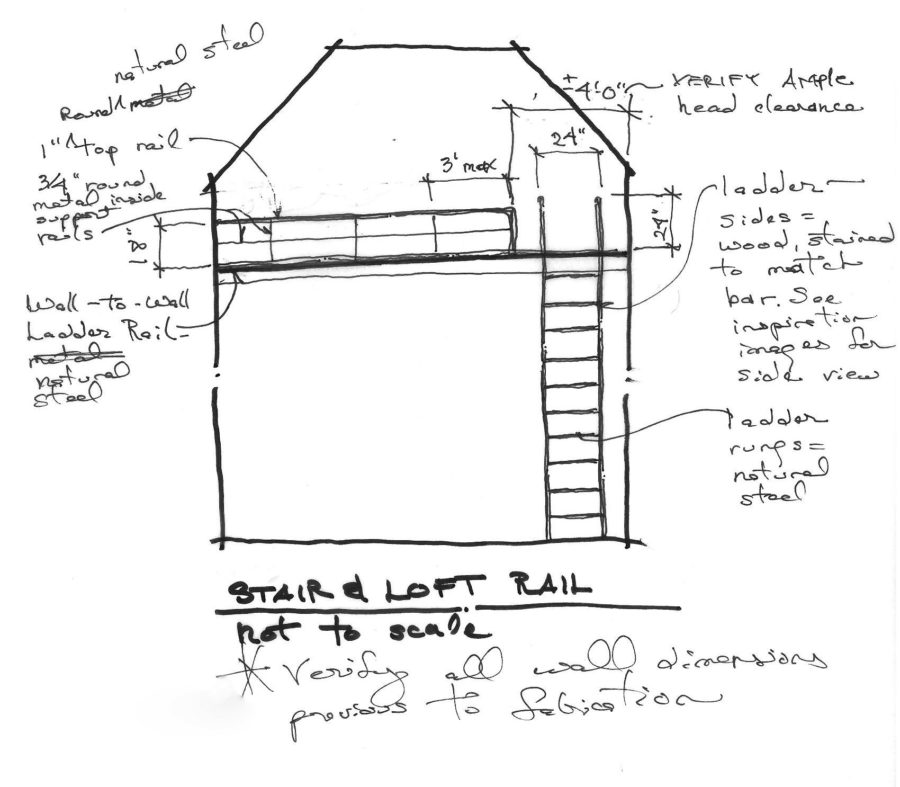 natural steel
Round metal
1" top rail
3/4" round
metal inside
support
rails
1'8"
Wall-to-Wall
Ladder Rail-
metal
natural
steel
3' max
±4'-0"
24"
VERIFY Ample
head clearance
24"
ladder
sides =
wood, stained
to match
bar. See
inspiration
images for
side view
ladder
rungs =
natural
steel
STAIR & LOFT RAIL
not to scale
* Verify all wall dimensions
previous to fabrication